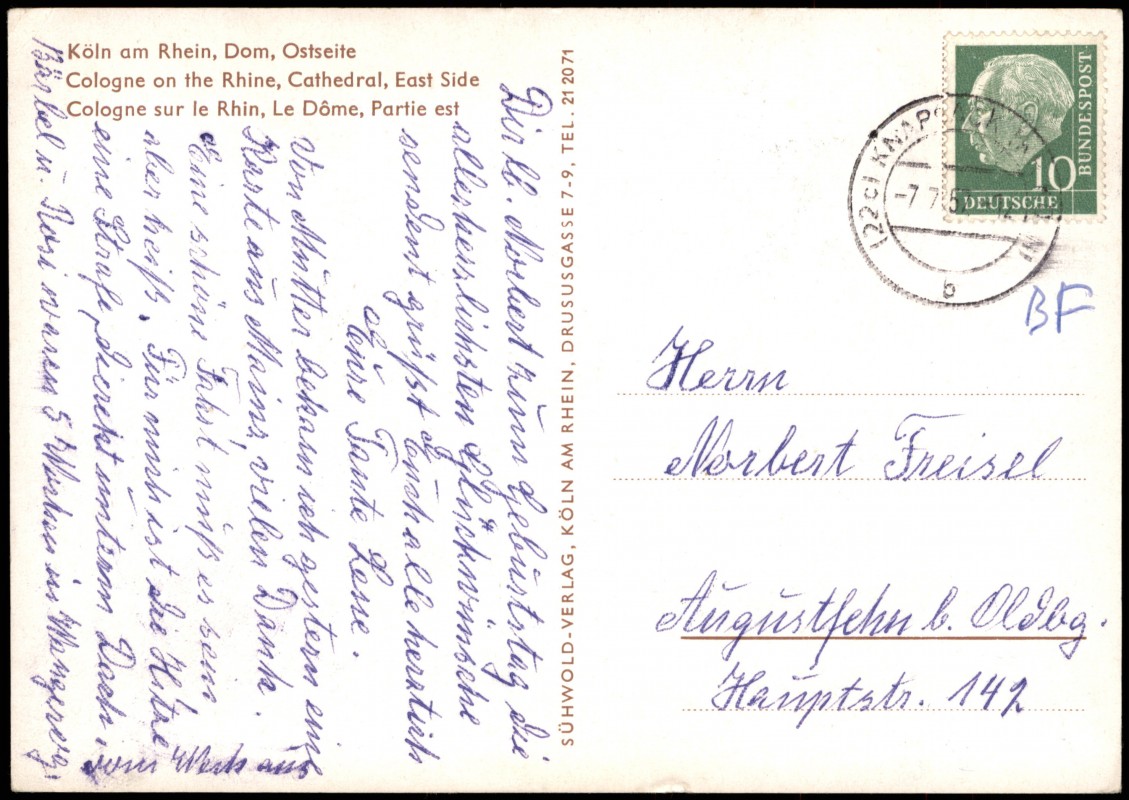 Köln am Rhein, Dom, Ostseite
Cologne on the Rhine, Cathedral, East Side
Cologne sur le Rhin, Le Dôme, Partie est
Dir lb. Norbert zum Geburtstag die
allerherzlichsten Glückwünsche
sendent grüßt Euch alle herzlich
Eure Tante Lesse.
Von Mutter bekam ich gestern eine
Karte aus Mainz, vielen Dank.
Eine schöne Fahrt muß es sein
aber heiß. Für mich ist die Hitze
eine Strafe, direkt unterm Dach.
Bärbel u. Rosi waren 5 Wochen in
vom Werk aus
SÜHWOLD-VERLAG, KÖLN AM RHEIN, DRUSUSGASSE 7-9, TEL. 21 20 71
DEUTSCHE BUNDESPOST
10
(22c) KNAPSACK
-7.7.57
b
BF
Herrn
Norbert Freisel
Augustfehn b. Oldbg.
Hauptstr. 142